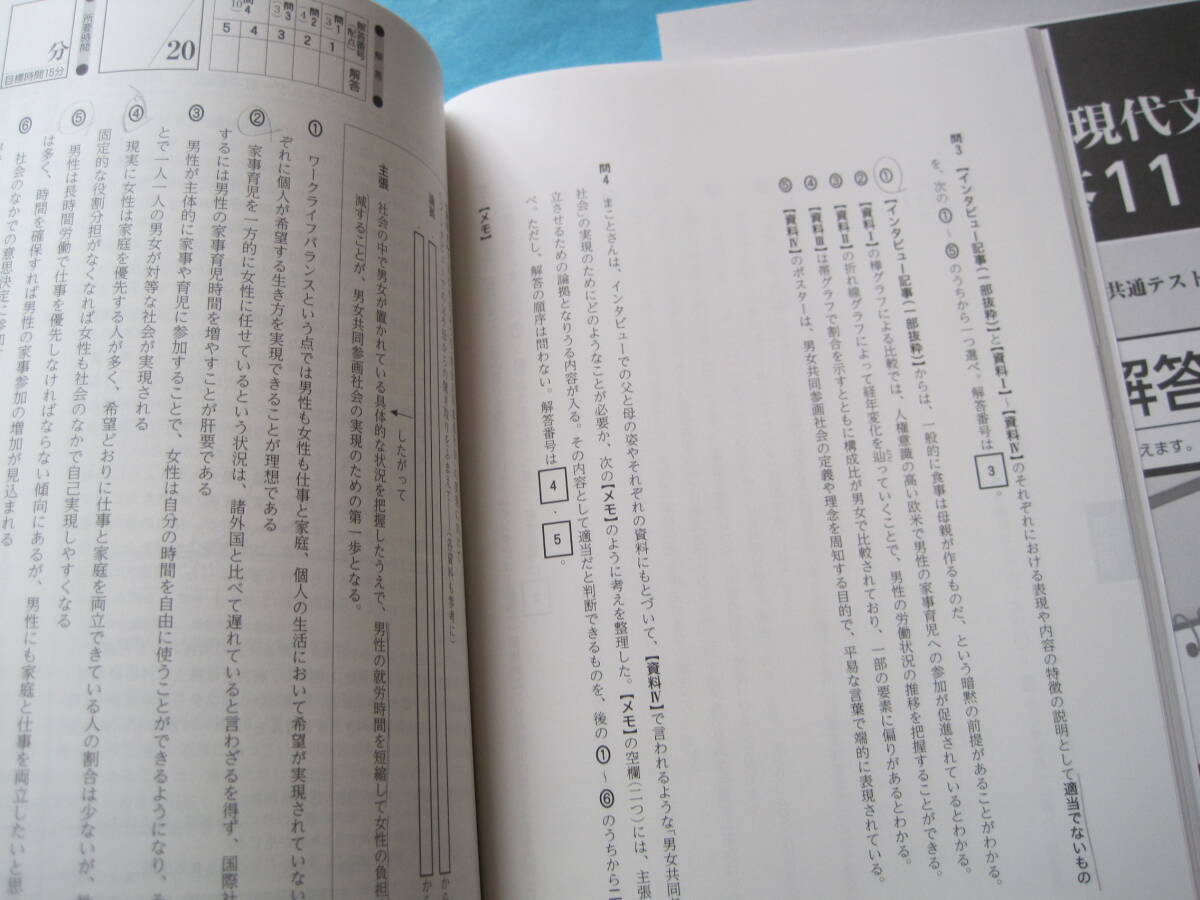 問3 【インタビュー記事(一部抜粋)】と【資料Ⅰ】~【資料Ⅳ】のそれぞれにおける表現や内容の特徴の説明として適当でないもの
を、次の①~⑤のうちから一つ選べ。解答番号は 3 。
① 【インタビュー記事(一部抜粋)】からは、一般的に食事は母親が作るものだ、という暗黙の前提があることがわかる。
② 【資料Ⅰ】の棒グラフによる比較では、人権意識の高い欧米で男性の家事育児への参加が促進されているとわかる。
③ 【資料Ⅱ】の折れ線グラフによって経年変化を辿っていくことで、男性の労働状況の推移を把握することができる。
④ 【資料Ⅲ】は帯グラフで割合を示すとともに構成比が男女で比較されており、一部の要素に偏りがあるとわかる。
⑤ 【資料Ⅳ】のポスターは、男女共同参画社会の定義や理念を周知する目的で、平易な言葉で端的に表現されている。
問4 まことさんは、インタビューでの父と母の姿やそれぞれの資料にもとづいて、【資料Ⅳ】で言われるような「男女共同
社会」の実現のためにどのようなことが必要か、次の【メモ】のように考えを整理した。【メモ】の空欄(二つ)には、主張
立させるための論拠となりうる内容が入る。その内容として適当だと判断できるものを、後の①~⑥のうちから二
べ。ただし、解答の順序は問わない。解答番号は 4 ・ 5 。
【メモ】
論拠
から
かく
したがって
主張 社会の中で男女が置かれている具体的な状況を把握したうえで、男性の就労時間を短縮して女性の負担
減することが、男女共同参画社会の実現のための第一歩となる。
① ワークライフバランスという点では男性も女性も仕事と家庭、個人の生活において希望が実現されていない
ぞれに個人が希望する生き方を実現できることが理想である
② 家事育児を一方的に女性に任せているという状況は、諸外国と比べて遅れていると言わざるを得ず、国際社
するには男性の家事育児時間を増やすことが肝要である
③ 男性が主体的に家事や育児に参加することで、女性は自分の時間を自由に使うことができるようになり、そ
とで一人一人の男女が対等な社会が実現される
④ 現実に女性は家庭を優先する人が多く、希望どおりに仕事と家庭を両立できている人の割合は少ないが、
固定的な役割分担がなくなれば女性も社会のなかで自己実現しやすくなる
⑤ 男性は長時間労働で仕事を優先しなければならない傾向にあるが、男性にも家庭と仕事を両立したいと思
は多く、時間を確保すれば男性の家事参加の増加が見込まれる
⑥ 社会のなかでの意思決定に参加
● 解答 ●
解答番号(配点) 解答
問1(3) 1
問2(4) 2
問3(3) 3
問4 10 4
5
20
● 所要時間 ●
分
目標時間15分
現代文
11
共通テスト
解答
えます。